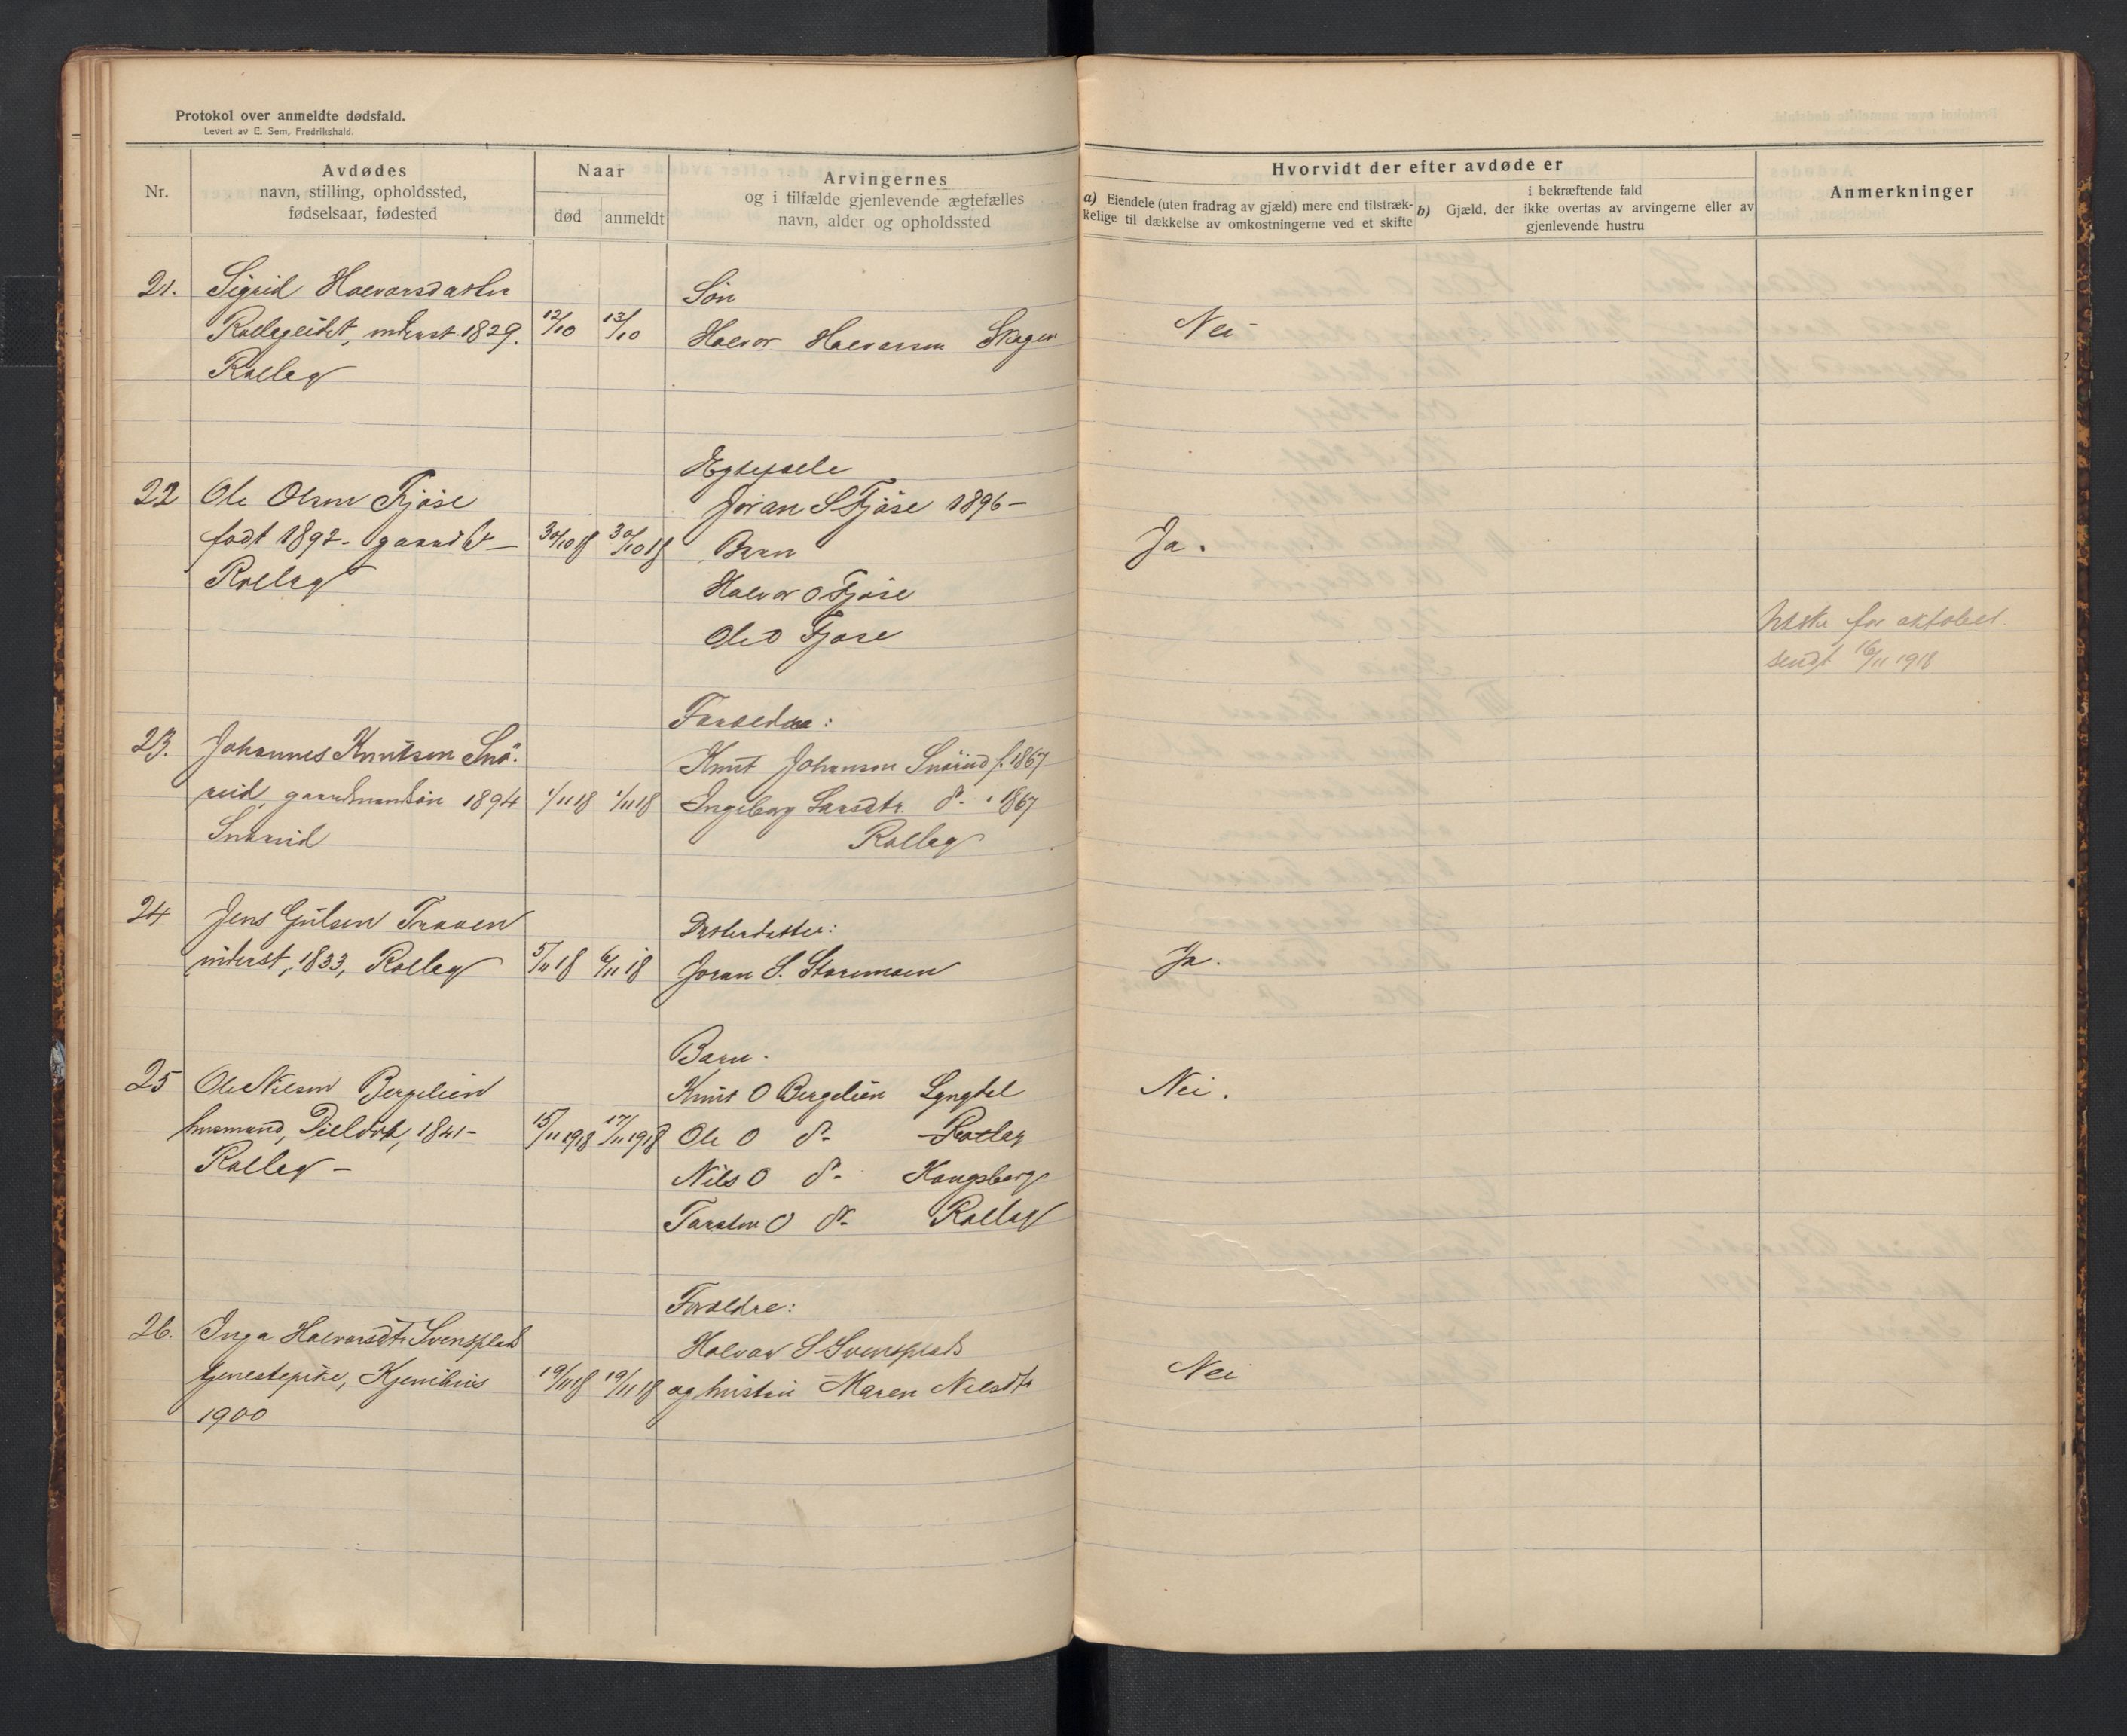 Protokol over anmeldte dødsfald.
Levert av E. Sem, Fredrikshald.
Nr.
Avdødes
navn, stilling, opholdssted,
fødselsaar, fødested
Naar
død
anmeldt
Arvingernes
og i tilfælde gjenlevende ægtefælles
navn, alder og opholdssted
Hvorvidt der efter avdøde er
a) Eiendele (uten fradrag av gjæld) mere end tilstræk-
kelige til dækkelse av omkostningerne ved et skifte
b) Gjæld, der i bekræftende fald
ikke overtas av arvingerne eller av
gjenlevende hustru
Anmerkninger
21. Sigrid Halvorsdatter
Rollageidet, inderst. 1829.
Rollag
12/10 13/10
Søn
Halvor Halvorsen Skagen
Nei
22 Ole Olsen Fjøse
født 1892 - gaardbr -
Rollag
30/10 18 30/10 18
Egtefæle
Joran S Fjøse 1896 -
Barn
Halvor O Fjøse
Ole O Fjøse
Ja.
for oktober
sendt 16/11 1918
23. Johannes Knutsen Snø-
reid, gaardmandsøn 1894
1/11 18 1/11 18
Forældre:
Knut Johansen f. 1867
Ingeborg Larsdtr. d- " 1867
Rollag
24 Jens Traaen
inderst, 1833, Rollag
5/11 18 6/11 18
Datterdatter:
Joran S.
Ja.
25 Ole Nilsen Bergelien
husmand, 1841 -
Rollag -
15/11 1918 17/11 1918
Barn.
Knut O Bergelien Lyngdal
Ole O d- Rollag
Nils O d- Kongsberg
Torsten O d- Rollag
Nei.
26. Inga Halvorsdtr Svensplads
tjenestepike, Kjemhus
1900
19/11 18 19/11 18
Forældre:
Halvor S Svensplads
og hustru Maren Nilsdtr
Nei